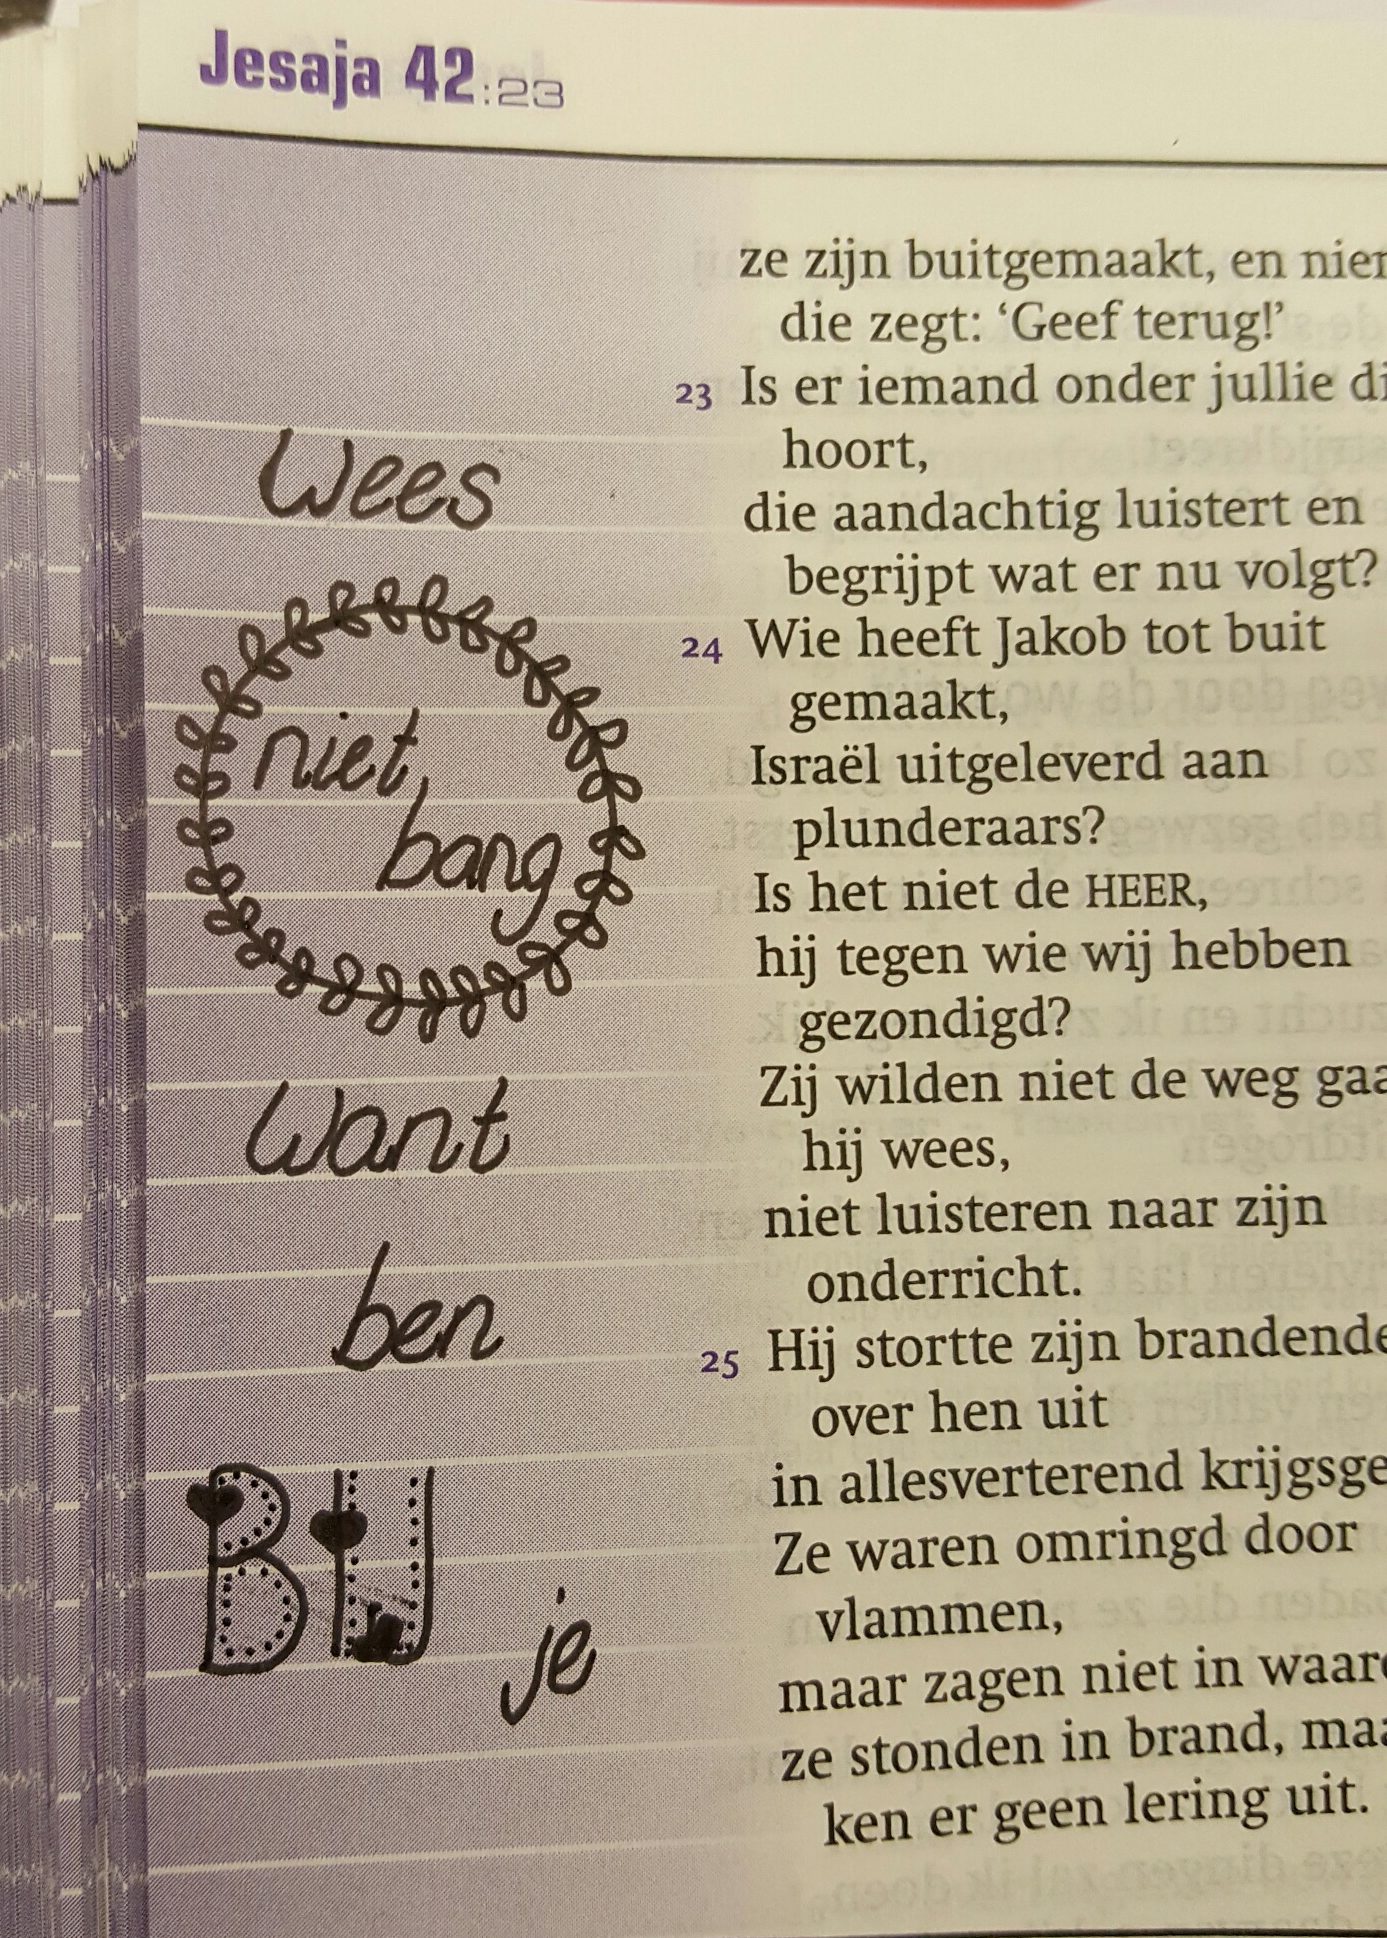 Jesaja 42:23
Wees
niet
bang
Want
ben
BIJ
je
ze zijn buitgemaakt, en
die zegt: ‘Geef terug!’
23 Is er iemand onder jullie
hoort,
die aandachtig luistert en
begrijpt wat er nu volgt?
24 Wie heeft Jakob tot buit
gemaakt,
Israël uitgeleverd aan
plunderaars?
Is het niet de HEER,
hij tegen wie wij hebben
gezondigd?
Zij wilden niet de weg
hij wees,
niet luisteren naar zijn
onderricht.
25 Hij stortte zijn brandende
over hen uit
in allesverterend
Ze waren omringd door
vlammen,
maar zagen niet in
ze stonden in brand,
ken er geen lering uit.